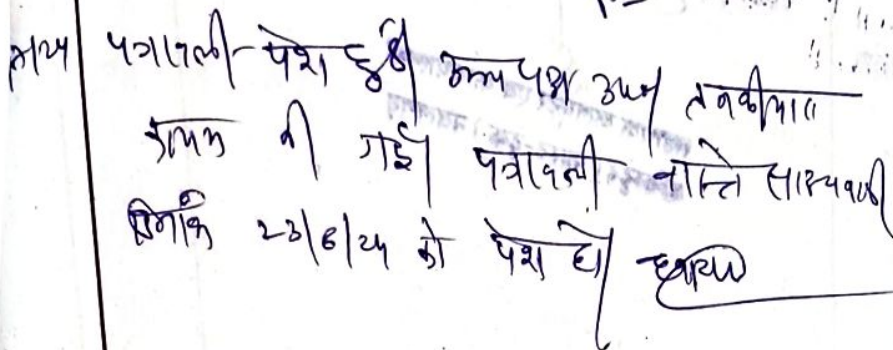 पत्रावली पेश हुई। उभय पक्ष उप0 तनकीयात
कायम की गई। पत्रावली वास्ते साक्ष्य वादी
दिनांक 23/6/25 को पेश हो।